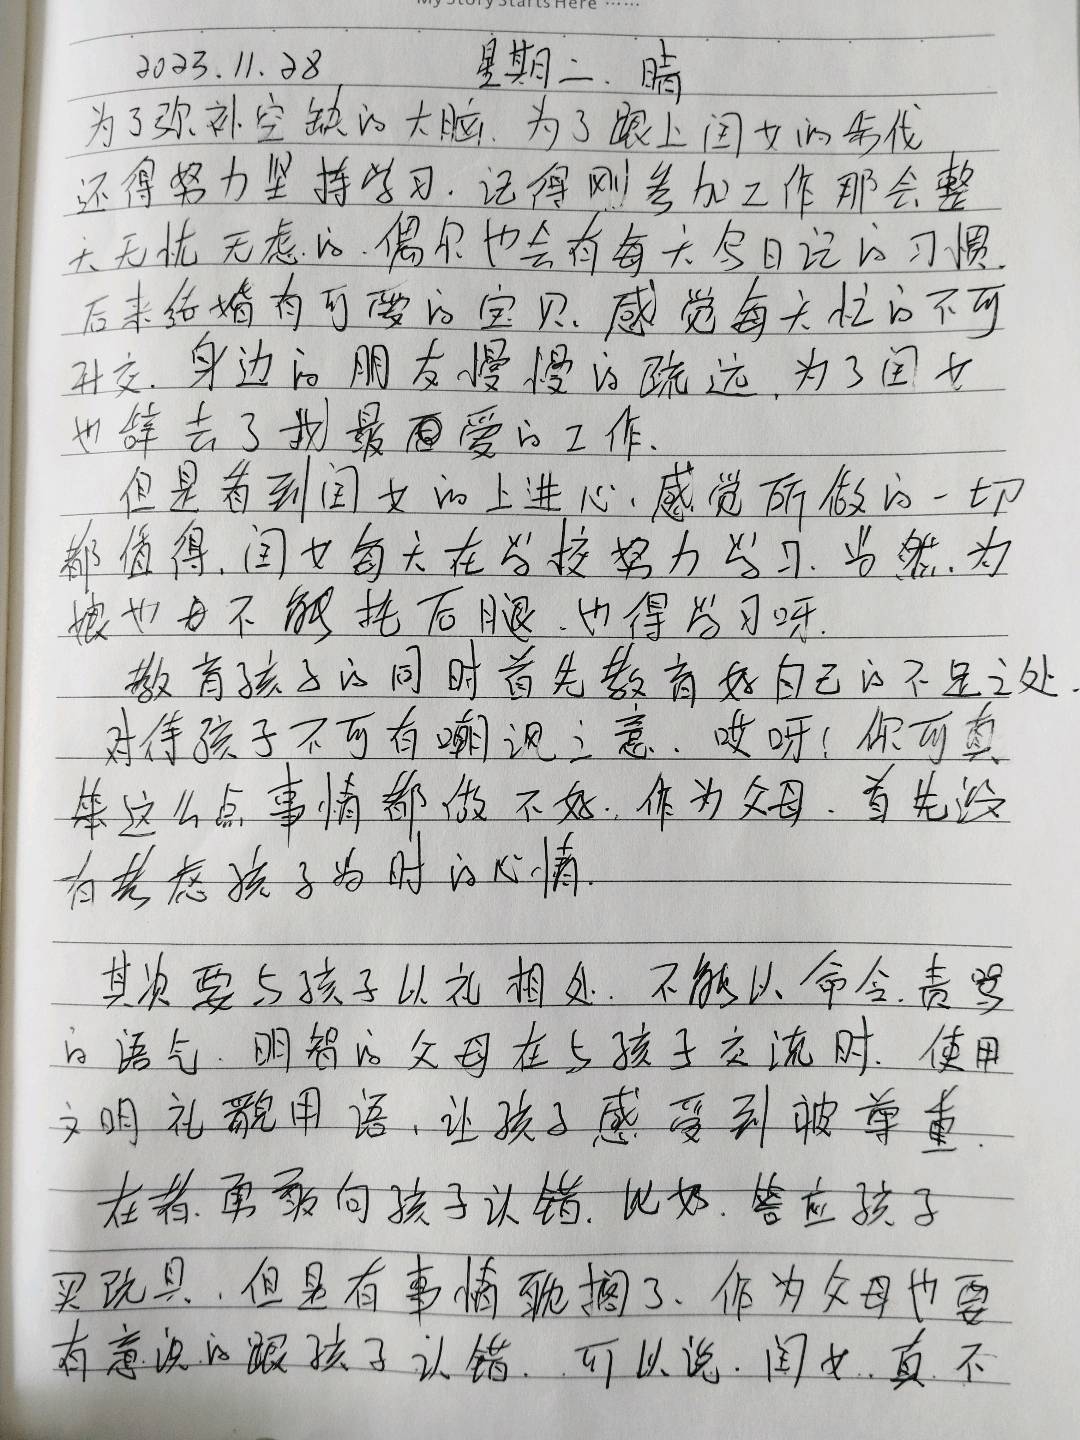 My Story Starts Here ······
2023.11.28 星期二. 晴
为了弥补空缺的大脑. 为了跟上闺女的年代
还得努力坚持学习. 记得刚参加工作那会整
天无忧无虑的. 偶尔也会有每天写日记的习惯.
后来结婚有可爱的宝贝. 感觉每天忙的不可
开交. 身边的朋友慢慢的疏远. 为了闺女
也辞去了我最爱的工作.
但是看到闺女的上进心. 感觉所做的一切
都值得. 闺女每天在学校努力学习. 当然. 为
娘也不能托后腿. 也得学习呀.
教育孩子的同时首先教育好自己的不足之处.
对待孩子不可有嘲讽之意. 哎呀! 你可真
笨这么点事情都做不好. 作为父母. 首先没
有考虑孩子当时的心情.
其次要与孩子以礼相处. 不能以命令. 责骂
的语气. 明智的父母在与孩子交流时. 使用
文明礼貌用语, 让孩子感受到被尊重.
在者. 勇敢向孩子认错. 比如. 答应孩子
买玩具. 但是有事情耽搁了. 作为父母也要
有意识的跟孩子认错. 可以说. 闺女. 真不